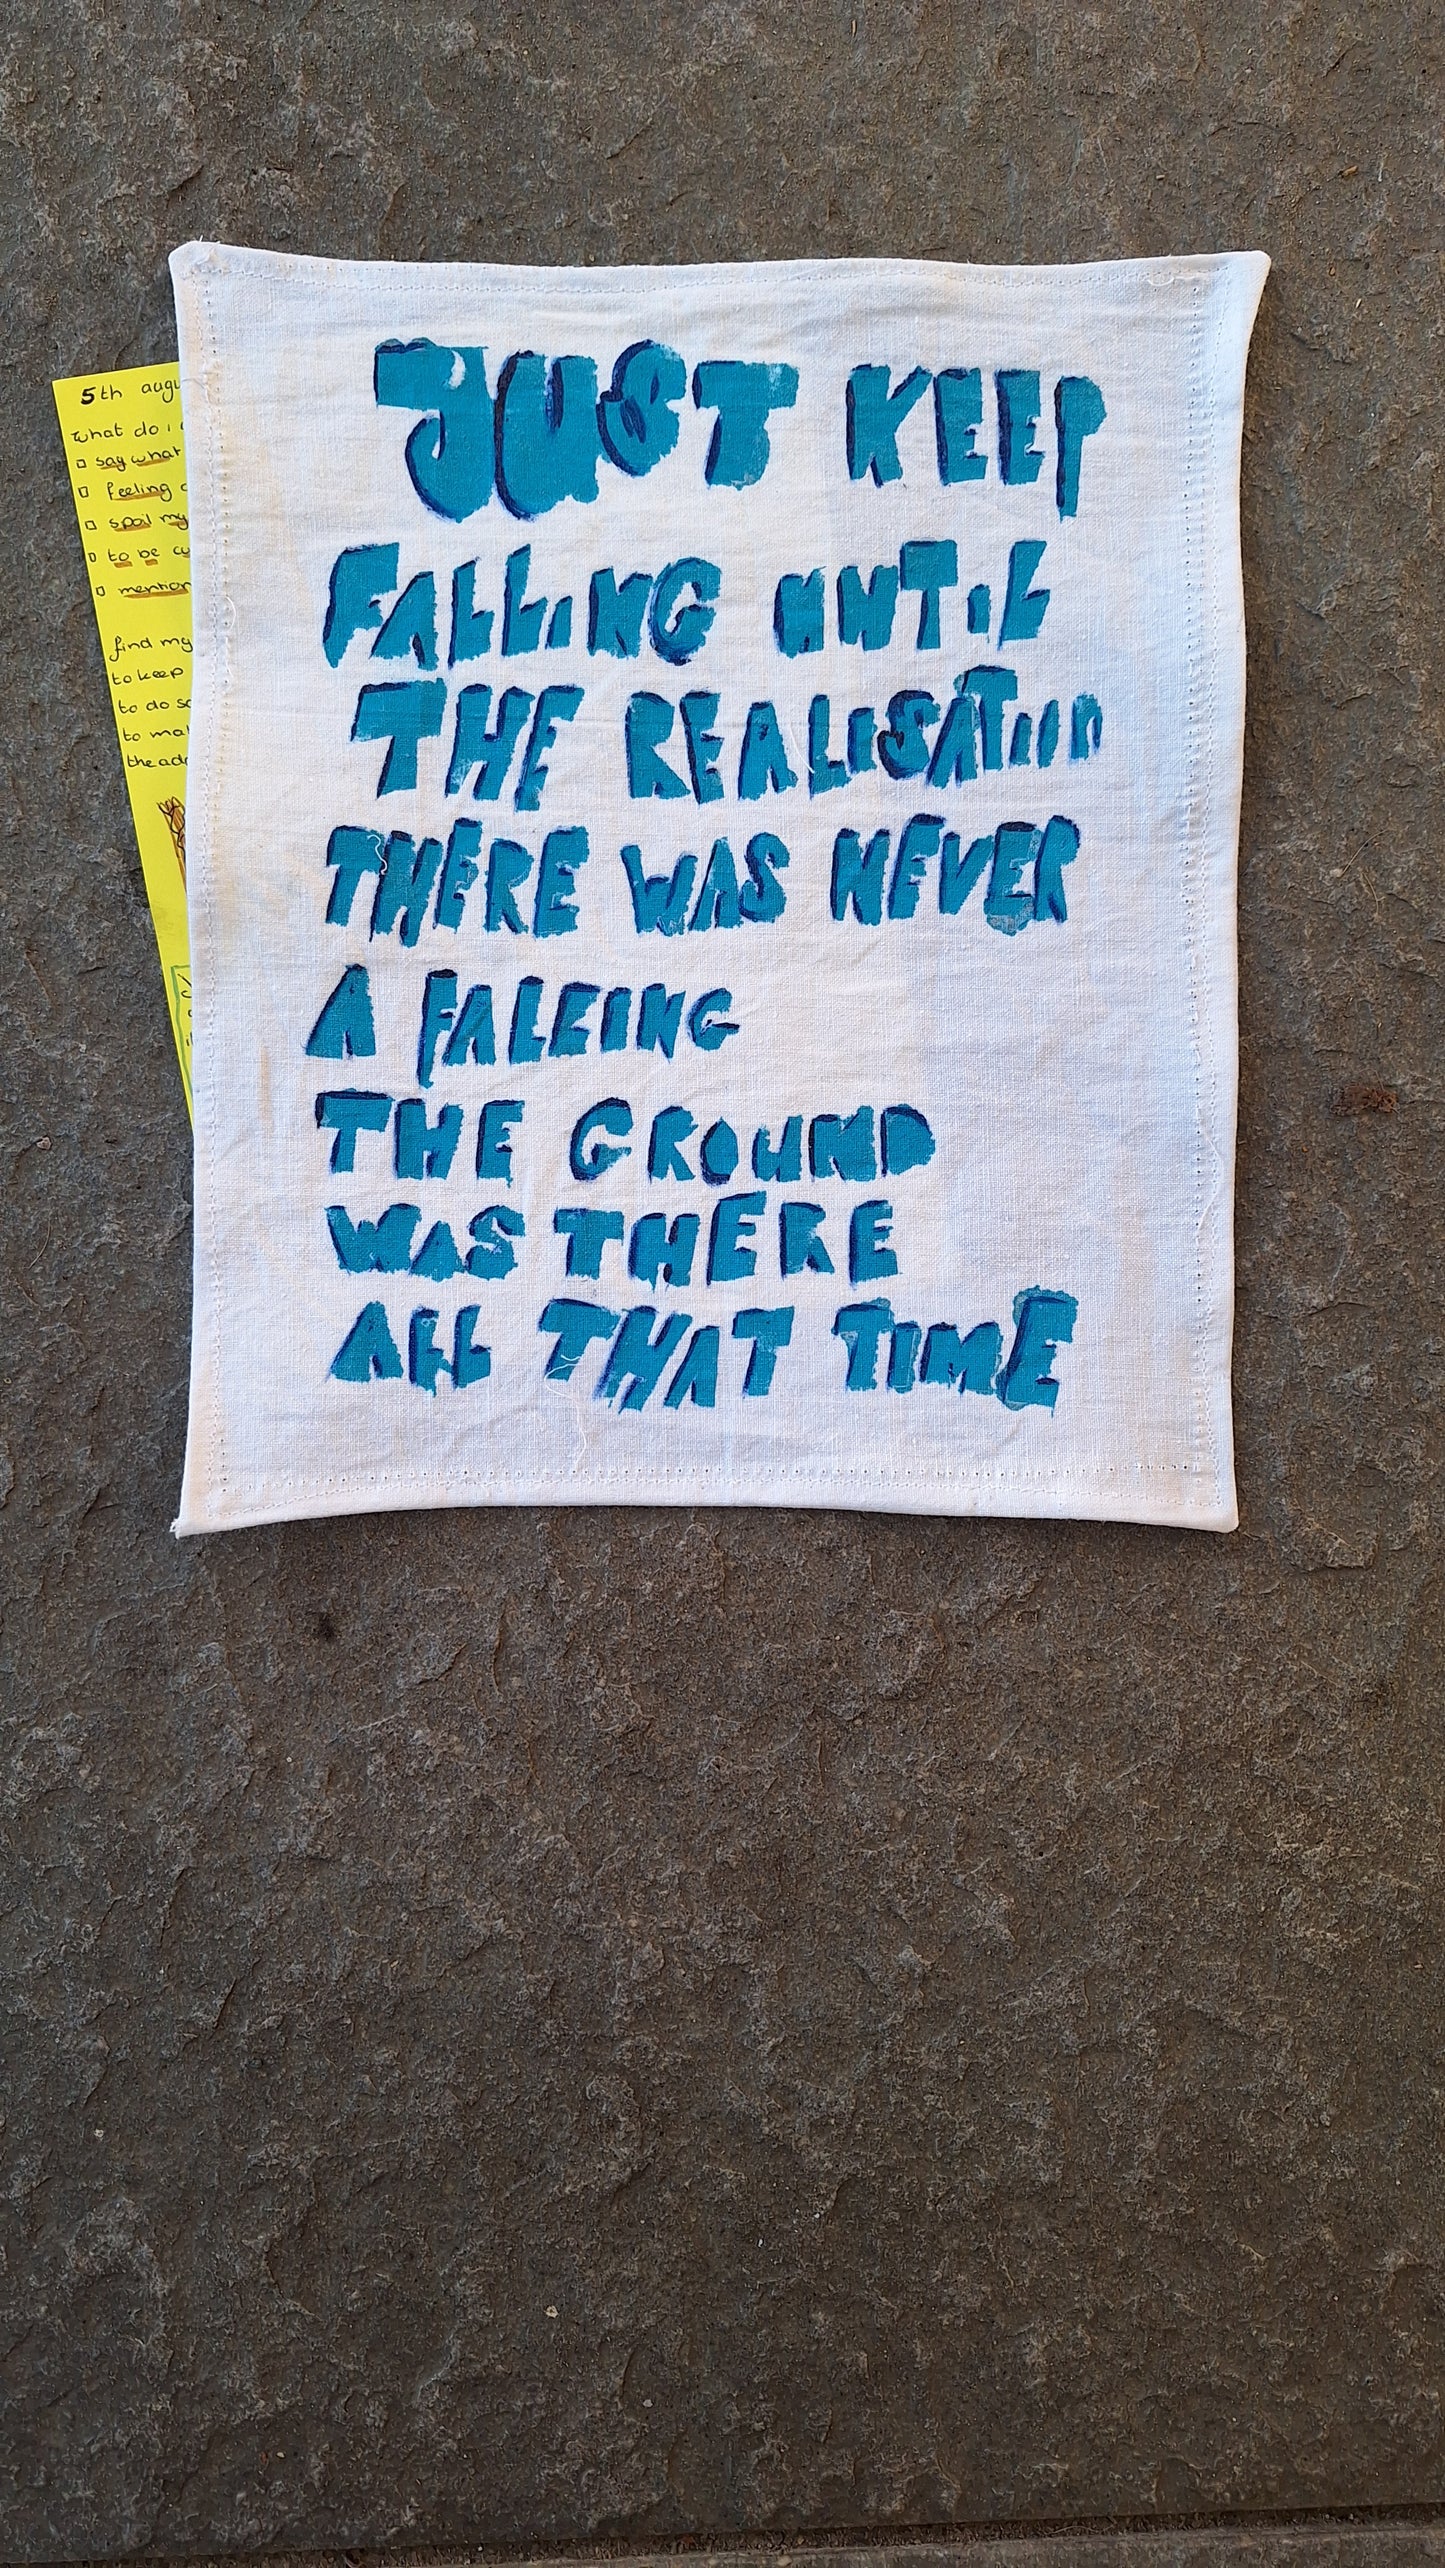 5th
what do i
say what
feeling
spoil my
to be
mention
find my
to keep
to do
to
the
JUST KEEP
FALLING UNTIL
THE REALISATION
THERE WAS NEVER
A FALEING
THE GROUND
WAS THERE
ALL THAT TIME